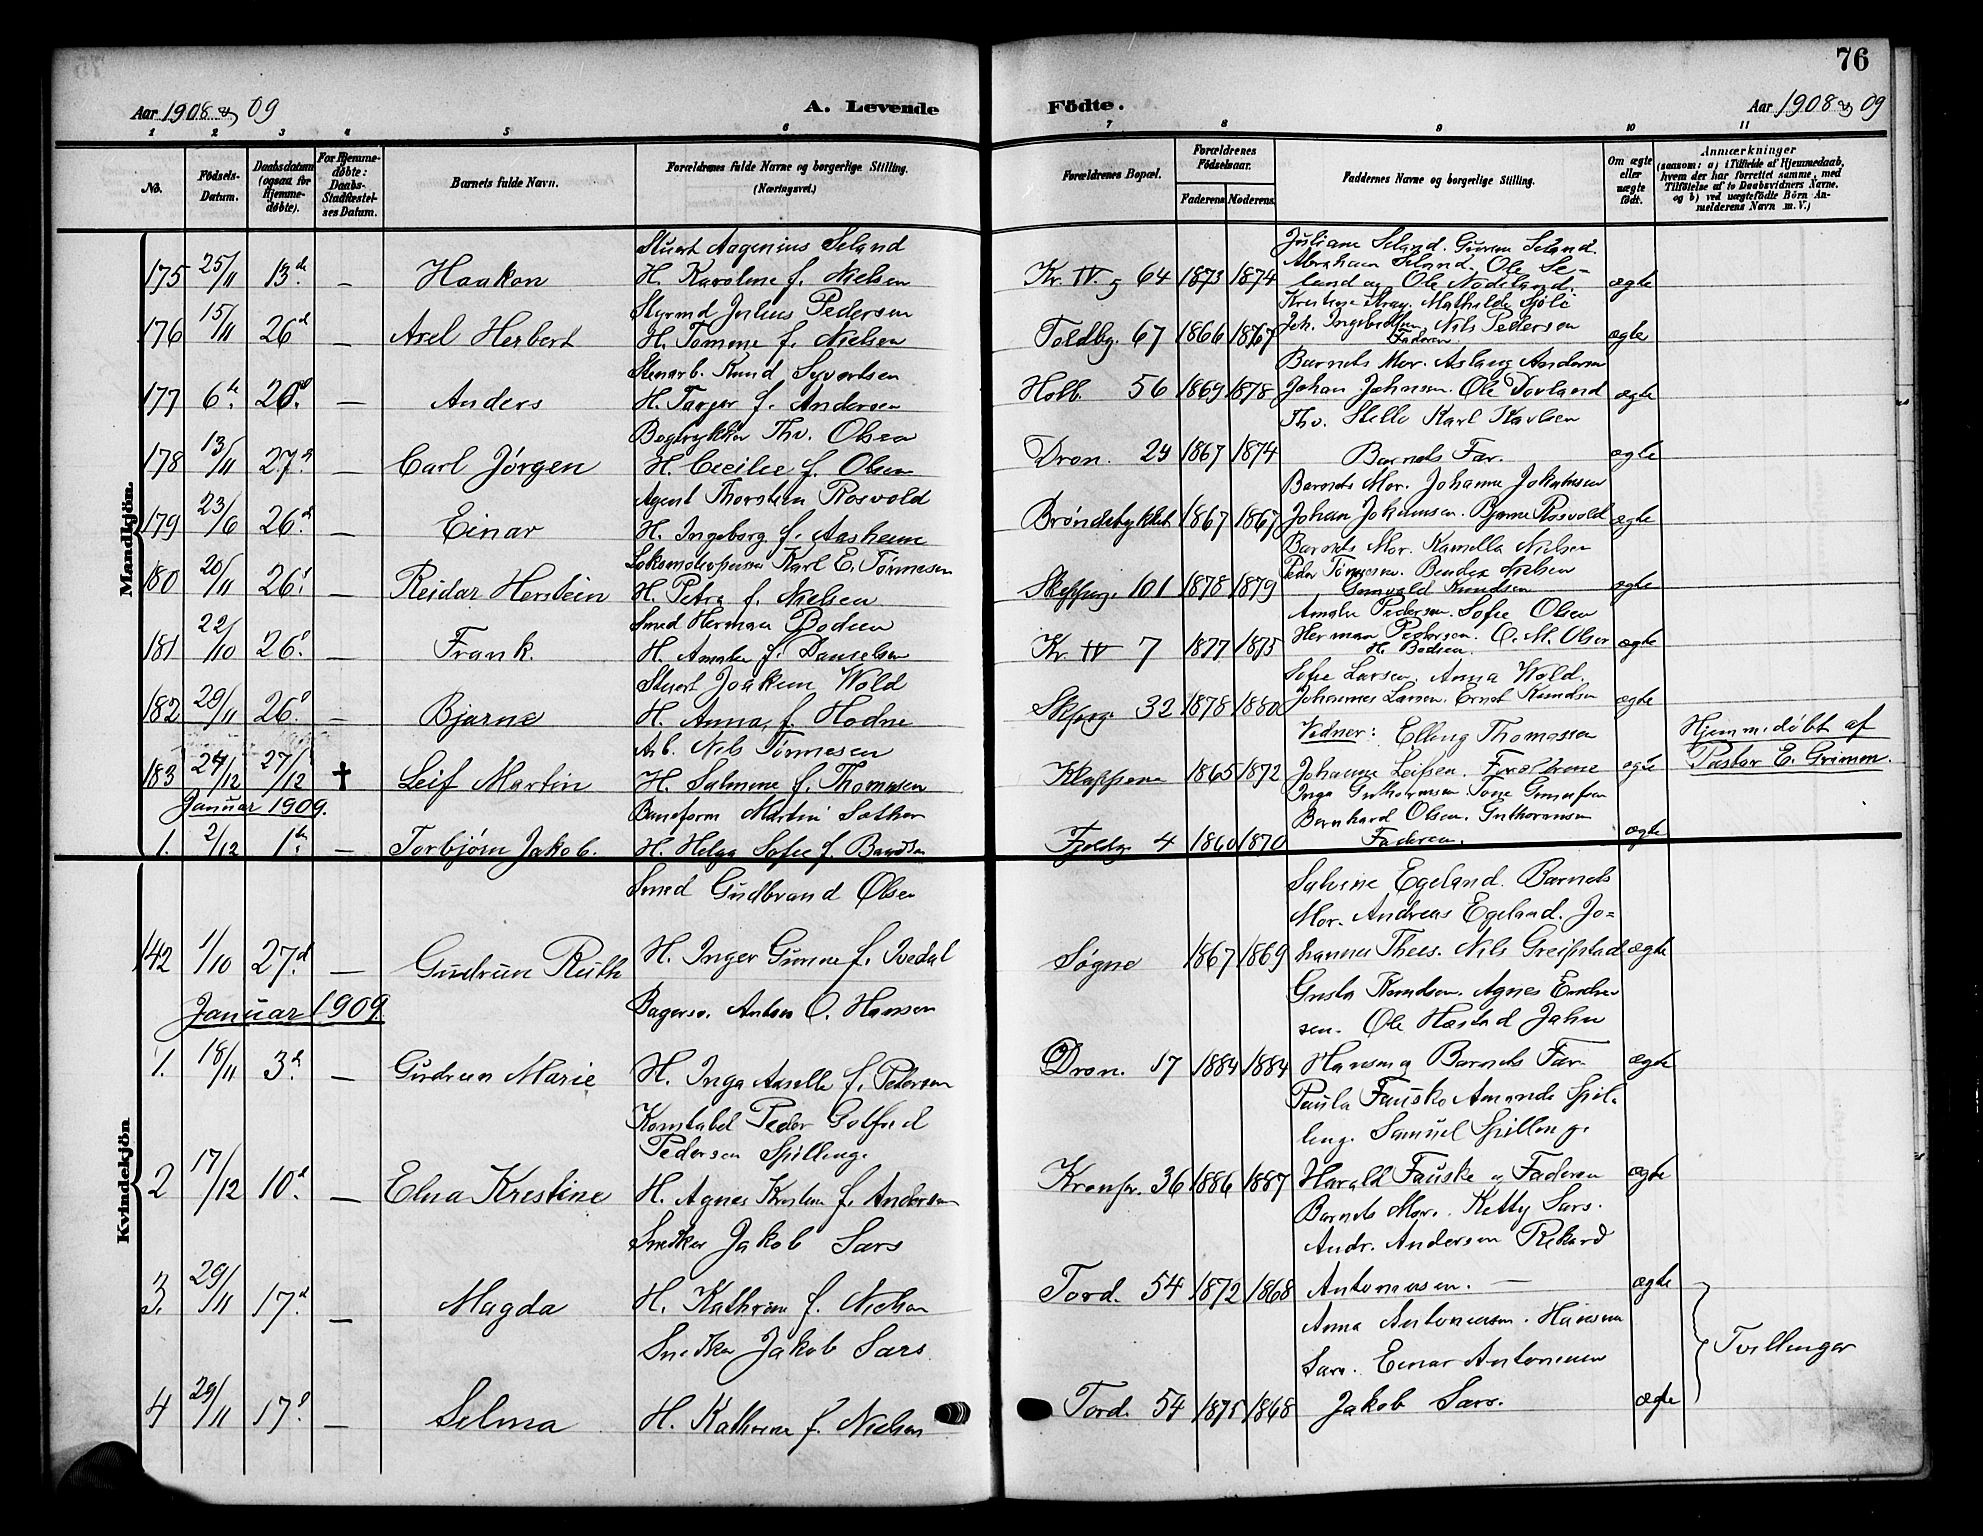 76
Aar 1908 & 09 A. Levende Födte. Aar 1908 & 09
1 2 3 4 5 6 7 8 9 10 11
No.
Födsels-Datum.
Daabsdatum (ogsaa for Hjemme-döbte).
For Hjemme-døbte: Daabs-Stadfæstel-ses Datum.
Barnets fulde Navn.
Forældrenes fulde Navne og borgerlige Stilling. (Næringsvei.)
Forældrenes Bopæl.
Forældrenes Födselsaar.
Faderens Moderens
Faddernes Navne og borgerlige Stilling.
Om ægte eller uægte født.
Anmærkninger
(saasom: a) i Tilfælde af Hjemmedaab, hvem der har forrettet samme, med Tilföielse af to Daabsvidners Navne, og b) ved uægtefödte Börn An-melderens Navn m. V.)
Mandkjön.
Stuert Aagenius Seland
175 25/11 13de – Haakon H. Karoline f. Nielsen Kr. IV. g 64 1873 1874 ægte
Juliane Seland. Gurine Seland.
Abraham Seland. Ole Se-
land og Ole Nodeland.
Styrmd Julius Pedersen
176 15/11 26d – Axel Herbert H. Tomine f. Nielsen Toldbg. 67 1866 1867 ægte
Kristine Aray. Mathilde Sjöli
Nils Pedersen
Faderen.
Stenarb. Knud Syvertsen
177 6te 26d – Anders H. Tarjer f. Andersen Holb. 56 1869 1878 ægte
Barnets Mor. Aslaug Andersen
Johan Johnsen. Ole Dovland
Thv. Stelle Karl Karlsen
Bogtrykker Thv. Olsen
178 13/11 27d – Carl Jørgen H. Cecilie f. Olsen Dron. 29 1867 1874 Barnets Far. ægte
Agent Thorstein Rosvold
179 23/6 26d – Einar H. Ingeborg f. Aasheim Brøndstykket 1867 1867 ægte
Barnets Mor. Johanne Jokumsen
Johan Jokumsen. Bjarne Rosvold
Karl E. Tönnesen
180 20/11 26d – Reidar Herstein H. Petra f. Nielsen Skipperg. 101 1878 1879 ægte
Barnets Mor. Kamilla Nielsen
Peder Tönnesen. Bendix Nielsen
Gunvald Knudsen
Smed Herman Bodsen
181 22/10 26d – Frank. H. Amalie f. Danielsen Kr IV 7 1877 1875 ægte
Amalie Pedersen. Sofie Olsen
Herman Pedersen. O. M. Olsen
H. Bodsen.
Stuert Joakim Wold
182 29/11 26d – Bjarne H. Anna f. Hodne Skiprg. 32 1878 1880 ægte
Sofie Larsen. Anna Wold.
Johannes Larsen. Ernst Knudsen
Arb. Nils Tönnesen
183 24/12 27/12 ✝ Leif Martin H. Salmine f. Thomasen Klappene 1865 1872 ægte
Vidner: Elling Thomassen
Johanne Leifsen. Forældrene
Hjemmedöbt af
Pastor E. Grimm.
Januar 1909.
Baneform Martin Sæther
1. 2/12 1te – Torbjørn Jakob. H. Helga Sofie f. Fjeldg. 4 1860 1870 ægte
Inga
Bernhard Olsen.
Faderen.
Kvindekjön
Smed Gudbrand Olsen
142 1/10 27d – Gudrun Ruth H. Inger Gurine f. Ivedal Søgne 1867 1869 ægte
Salvine Egeland. Barnets
Mor. Andreas Egeland. Jo-
hannes Thees. Nils Greipstad
Januar 1909.
Bagersv. Anton O. Hansen
1. 18/11 3d – Gudrun Marie H. Inga Aaselle f. Pedersen Dron. 17 1884 1884 ægte
Gusta Knudsen. Agnes Endre-
sen. Ole Hæstad John
Hansen og Barnets Far.
Konstabel Peder Gotfred
Pedersen Spilling.
2 17/12 10d – Elna Kristine H. Agnes Kristine f. Andersen Kronpr. 36 1886 1887 ægte
Paula Fauske Amanda Spil-
ling. Samuel Spilling.
Harald Fauske og Faderen
Snedker Jakob Særs
3. 29/11 17d – Magda H. Kathrine f. Nielsen Tord. 54 1872 1868 ægte
Barnets Mor. Ketty Særs.
Andr. Andersen Rikard
Antoniusen. –
Snedker Jakob Særs.
4 29/11 17d – Selma H. Kathrine f. Nielsen Tord. 54 1875 1868 ægte
Anna Antoniusen.
Særs. Einar Antoniusen
Jakob Særs.
Tvillinger